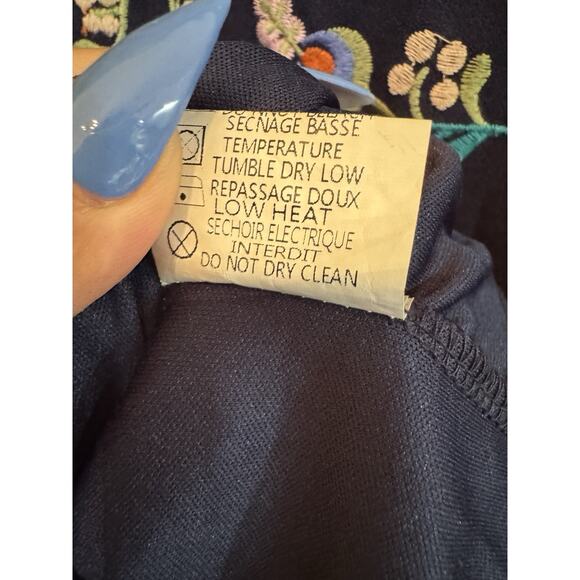 DO NOT BLEACH
SECNAGE BASSE
TEMPERATURE
TUMBLE DRY LOW
REPASSAGE DOUX
LOW HEAT
SECHOIR ELECTRIQUE
INTERDIT
DO NOT DRY CLEAN